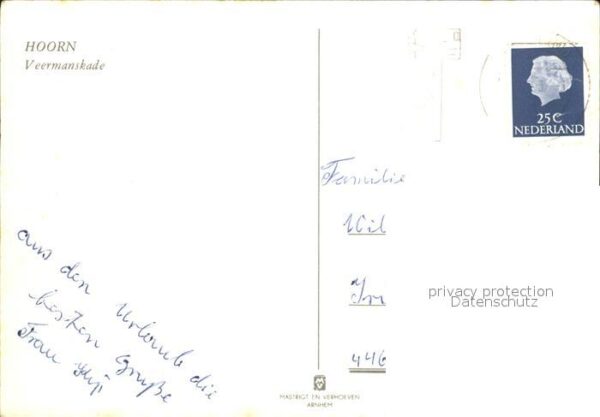 HOORN
Veermanskade
25 C
NEDERLAND
Familie
Wil
Im
446
privacy protection
Datenschutz
aus den Urlaub die
besten Grüße
Frau
MASTRIGT EN VERHOEVEN
ARNHEM